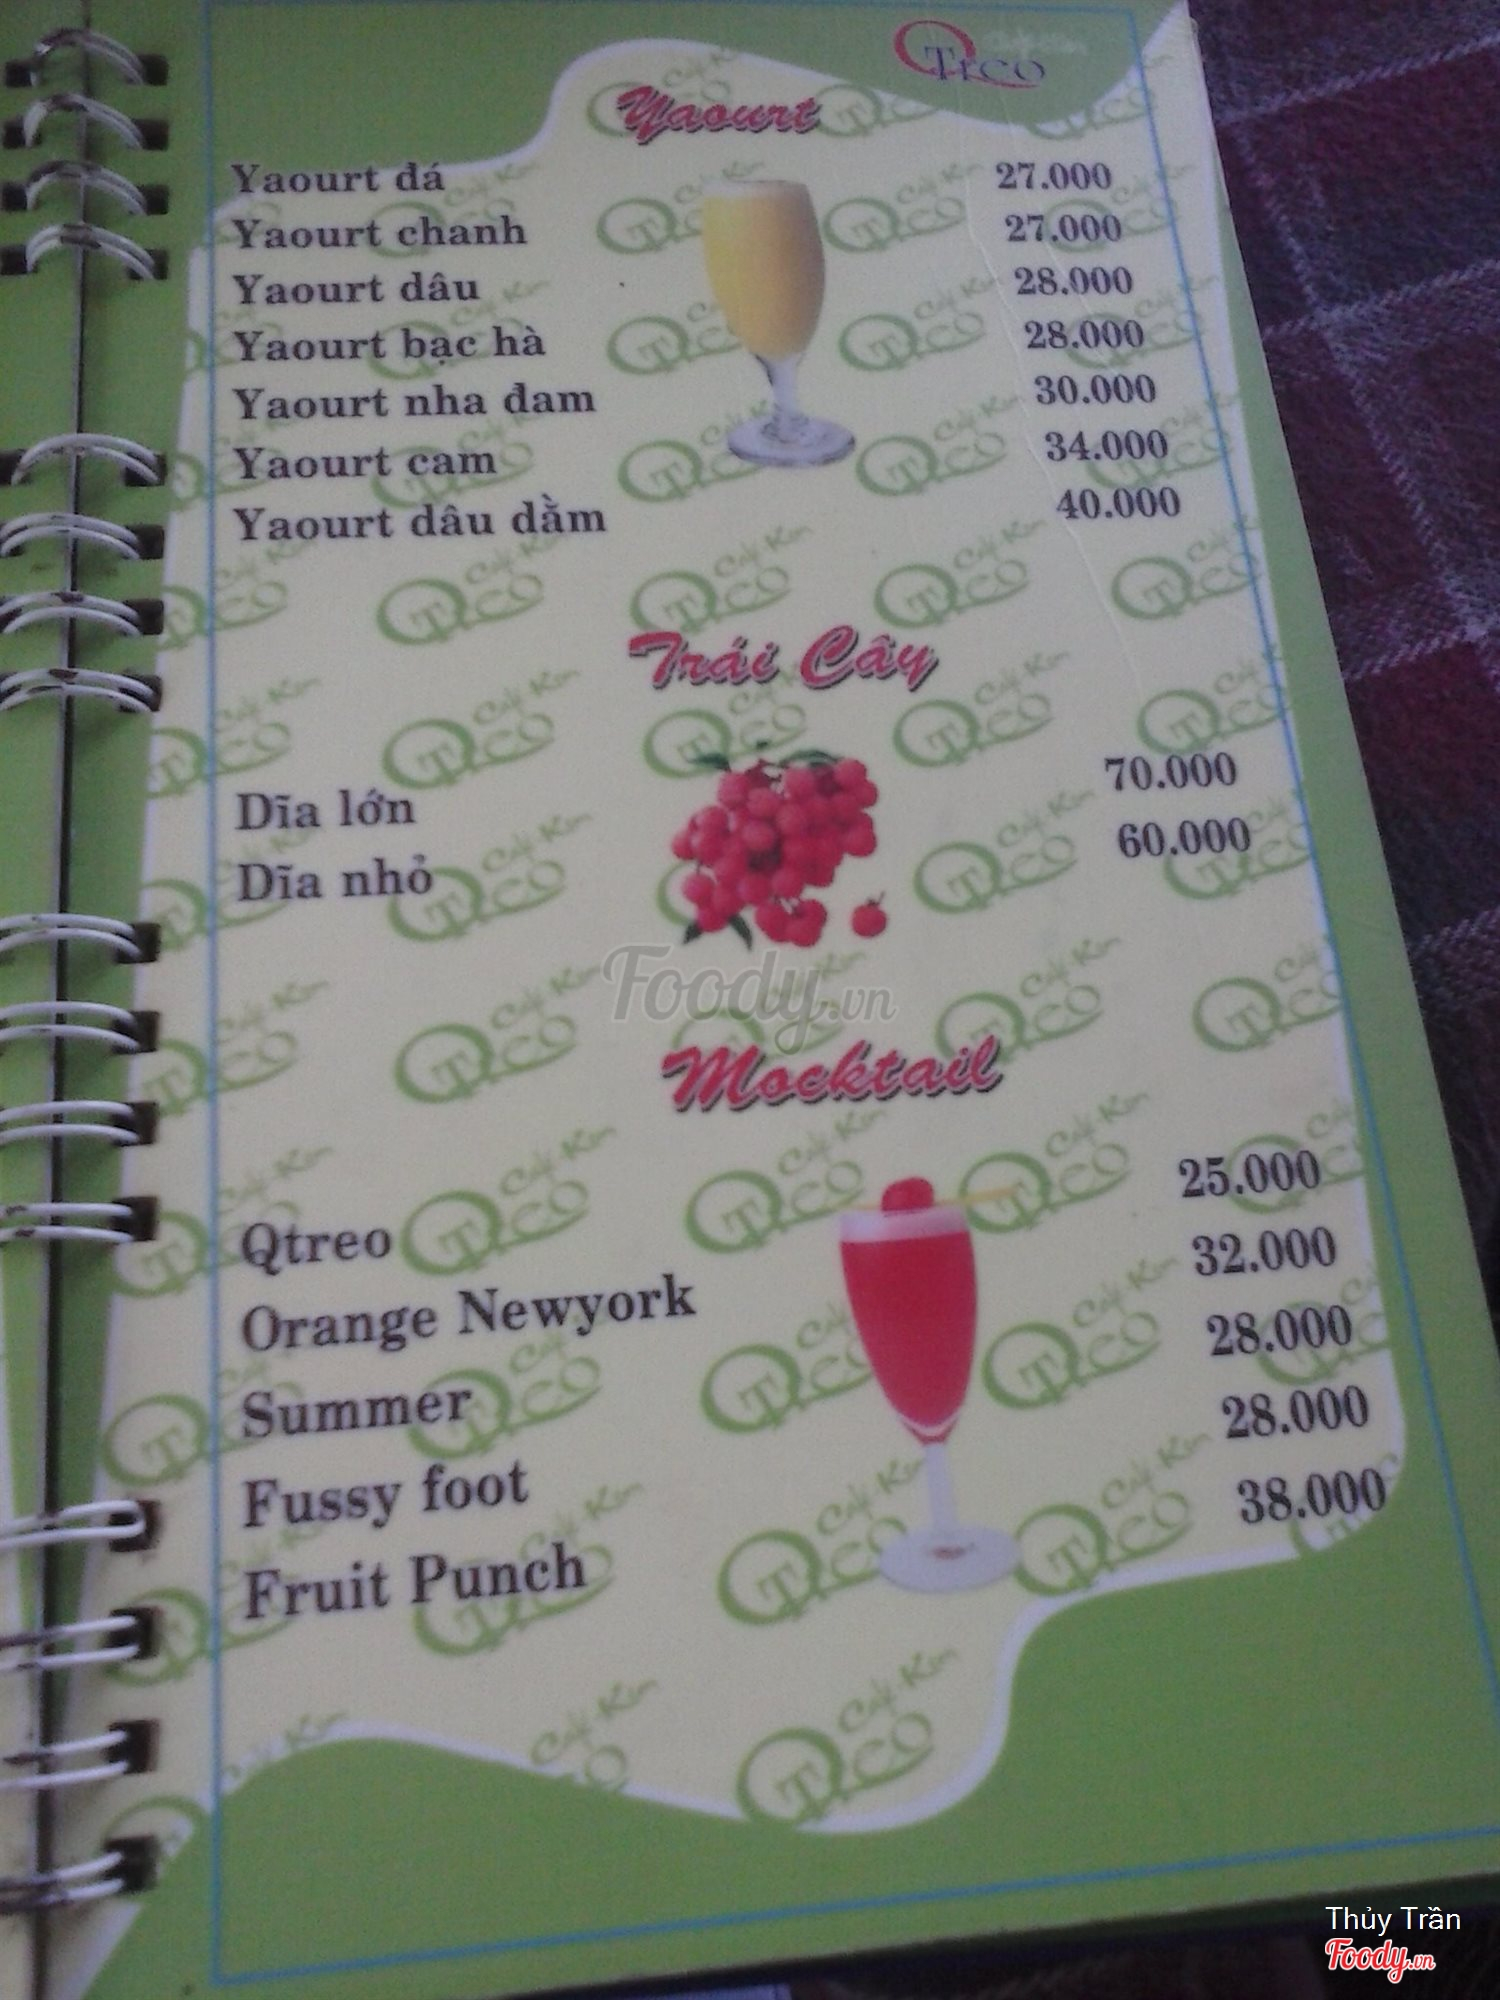 QTrco
Yaourt
Yaourt đá 27.000
Yaourt chanh 27.000
Yaourt dâu 28.000
Yaourt bạc hà 28.000
Yaourt nha đam 30.000
Yaourt cam 34.000
Yaourt dâu dằm 40.000
Trái Cây
Dĩa lớn 70.000
Dĩa nhỏ 60.000
Foody.vn
Mocktail
Qtreo 25.000
Orange Newyork 32.000
Summer 28.000
Fussy foot 28.000
Fruit Punch 38.000
Thủy Trần
Foody.vn